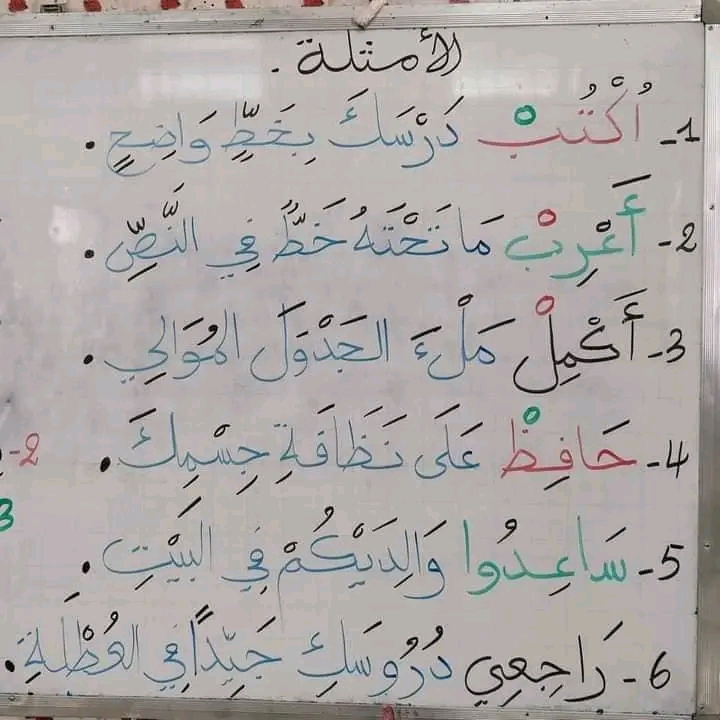 الأمثلة.
1- اُكْتُبْ دَرْسَكَ بِخَطٍّ وَاضِحٍ.
2- أَعْرِبْ مَا تَحْتَهُ خَطٌّ فِي النَّصِّ.
3- أَكْمِلْ مَلْءَ الجَدْوَلَ المُوَالِي.
4- حَافِظْ عَلَى نَظَافَةِ جِسْمِكَ.
5- سَاعِدُوا وَالِدَيْكُمْ فِي البَيْتِ.
6- رَاجِعِي دُرُوسَكِ جَيِّدًا فِي العُطْلَةِ.
2-
3